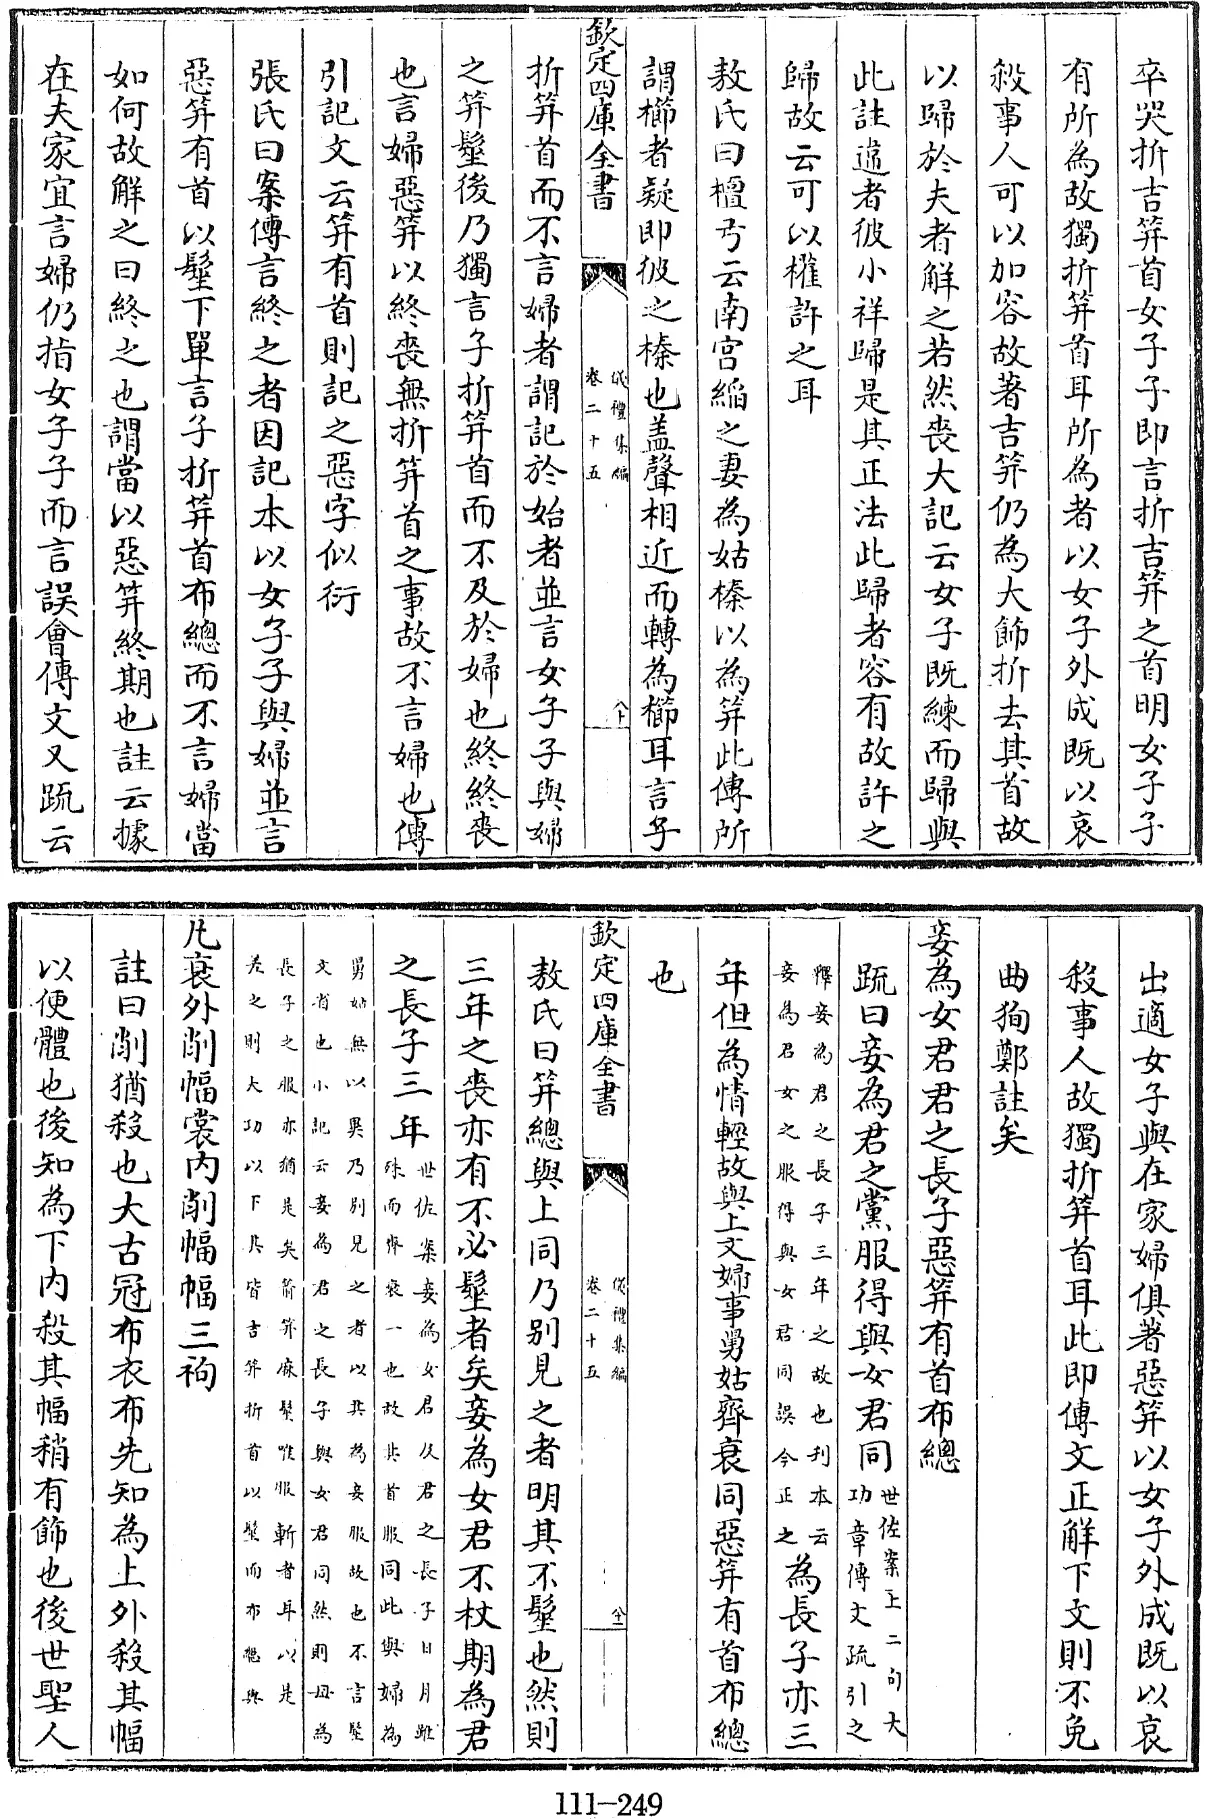 卒哭折吉笄首女子子即言折吉笄之首明女子子
有所為故獨折笄首耳所為者以女子外成既以哀
殺事人可以加容故著吉笄仍為大飾折去其首故
以歸於夫者解之若然喪大記云女子既練而歸與
此註違者彼小祥歸是其正法此歸者容有故許之
歸故云可以權許之耳
敖氏曰檀弓云南宮縚之妻為姑榛以為笄此傳所
謂櫛者疑即彼之榛也蓋聲相近而轉為櫛耳言子
欽定四庫全書
儀禮集編
卷二十五
折笄首而不言婦者謂記於始者並言女子子與婦
之笄髽後乃獨言子折笄首而不及於婦也終終喪
也言婦惡笄以終喪無折笄首之事故不言婦也傳
引記文云笄有首則記之惡字似衍
張氏曰案傳言終之者因記本以女子子與婦並言
惡笄有首以髽下單言子折笄首布總而不言婦當
如何故解之曰終之也謂當以惡笄終期也註云據
在夫家宜言婦仍指女子子而言誤會傳文又疏云
出適女子與在家婦俱著惡笄以女子外成既以哀
殺事人故獨折笄首耳此即傳文正解下文則不免
曲狥鄭註矣
妾為女君君之長子惡笄有首布總
疏曰妾為君之黨服得與女君同世佐案上二句大功章傳文疏引之
釋妾為君之長子三年之故也刋本云妾為君女之服得與女君同誤今正之為長子亦三
年但為情輕故與上文婦事舅姑齊衰同惡笄有首布總
也
欽定四庫全書
儀禮集編
卷二十五
敖氏曰笄總與上同乃别見之者明其不髽也然則
三年之喪亦有不必髽者矣妾為女君不杖期為君
之長子三年世佐案妾為女君及君之長子日月雖殊而齊衰一也故其首服同此與婦為
舅姑無以異乃别見之者以其為妾服故也不言髽文省也小記云妾為君之長子與女君同然則母為
長子之服亦猶是矣箭笄麻髽唯服斬者耳以是差之則大功以下其皆吉笄折首以髽而布總與
凡衰外削幅裳内削幅幅三袧
註曰削猶殺也大古冠布衣布先知為上外殺其幅
以便體也後知為下内殺其幅稍有飾也後世聖人
111-249